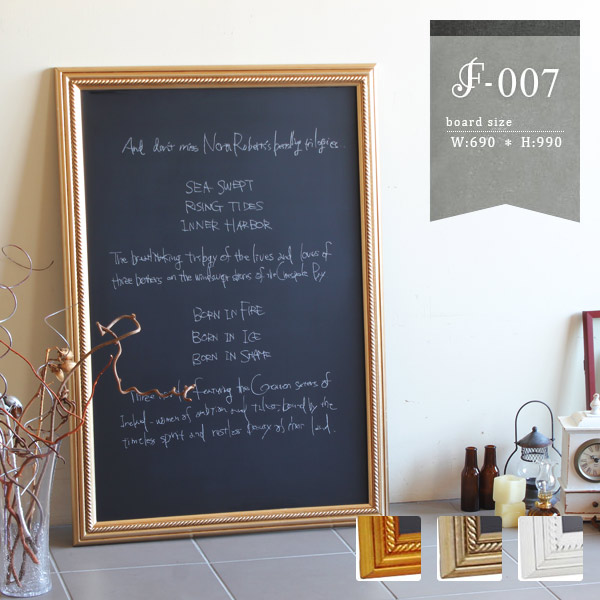 And don't miss Nora Roberts's family trilogies.
SEA SWEPT
RISING TIDES
INNER HARBOR
The breathtaking trilogy of the lives and loves of
three brothers on the windswept shores of the Chesapeake Bay
BORN IN FIRE
BORN IN ICE
BORN IN SHAME
Three featuring the Concannon sisters of
Ireland - women of ambition and talent, bound by the
timeless spirit and restless beauty of their land.
F-007
board size
W:690 * H:990